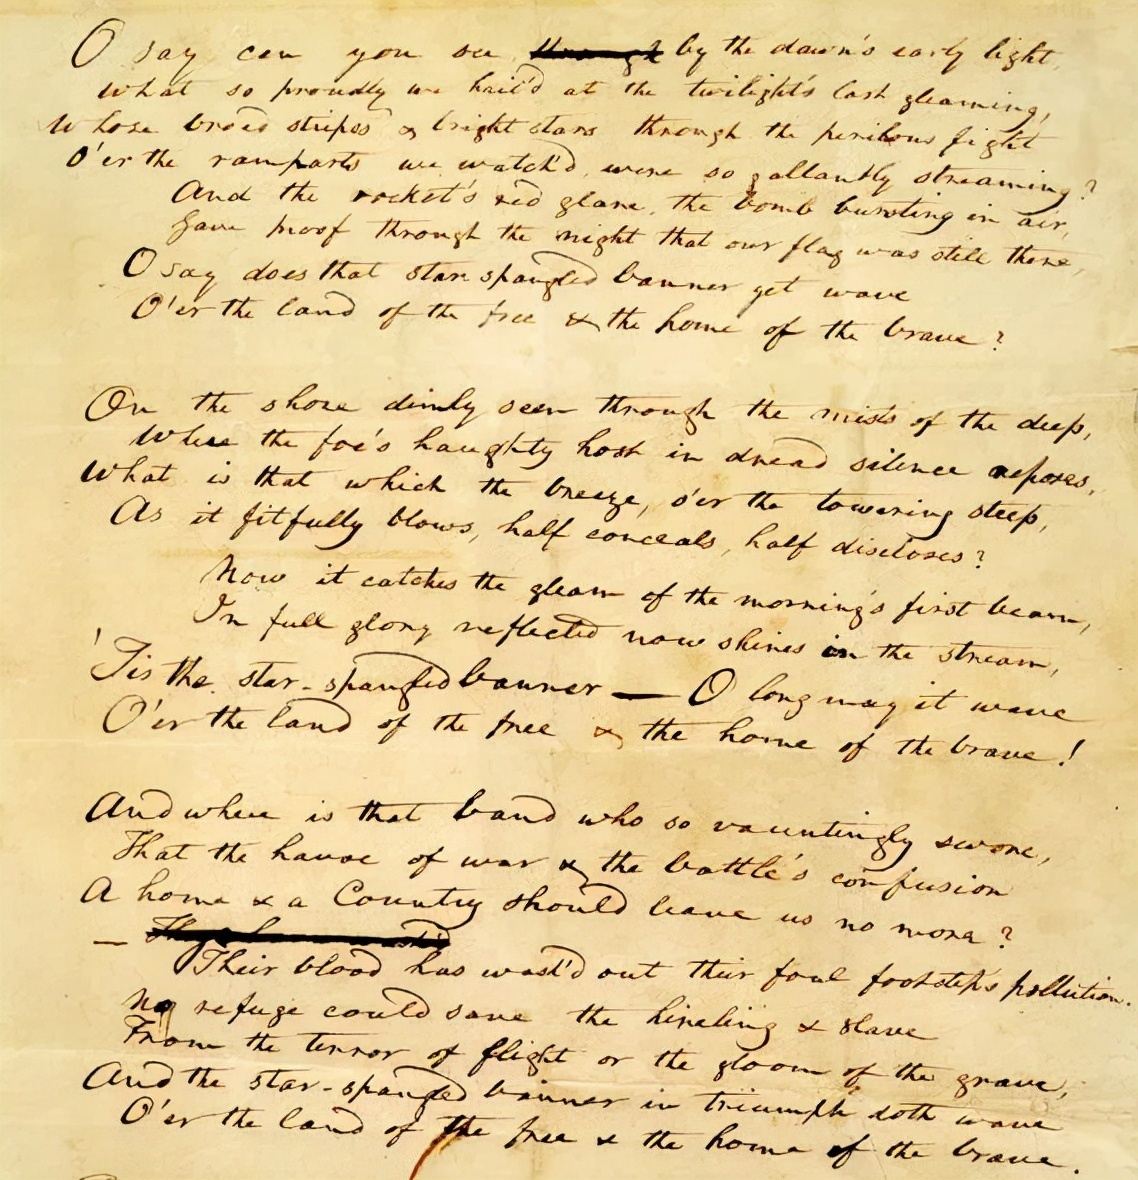 O say can you see by the dawn's early light,
What so proudly we hail'd at the twilight's last gleaming,
Whose broad stripes & bright stars through the perilous fight
O'er the ramparts we watch'd, were so gallantly streaming?
And the rocket's red glare, the bomb bursting in air,
Gave proof through the night that our flag was still there,
O say does that star spangled banner yet wave
O'er the land of the free & the home of the brave?
On the shore dimly seen through the mists of the deep,
Where the foe's haughty host in dread silence reposes,
What is that which the breeze, o'er the towering steep,
As it fitfully blows, half conceals, half discloses?
Now it catches the gleam of the morning's first beam,
In full glory reflected now shines in the stream,
'Tis the star-spangled banner — O long may it wave
O'er the land of the free & the home of the brave!
And where is that band who so vauntingly swore,
That the havoc of war & the battle's confusion
A home & a Country should leave us no more?
—
Their blood has wash'd out their foul footstep's pollution.
No refuge could save the hireling & slave
From the terror of flight or the gloom of the grave,
And the star-spangled banner in triumph doth wave
O'er the land of the free & the home of the brave.